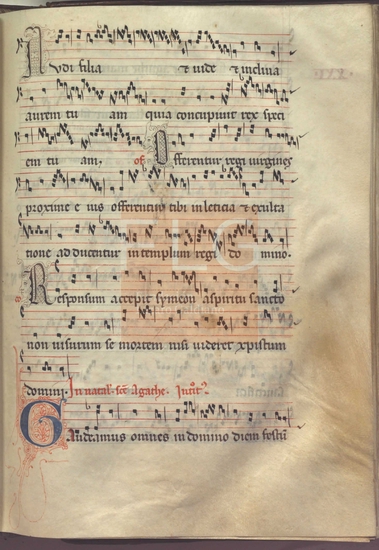 Audi filia et uide et inclina
aurem tu am quia concupiuit rex speci
em tu am, of Offerentur regi uirgines
proxime e ius offerentur tibi in leticia et exulta
tione adducentur in templum regi do mino.
Responsum accepit symeon a spiritu sancto
non uisurum se mortem nisi uideret xpistum
domini. In natal. sce Agathe. Introit.
Gaudeamus omnes in domino diem festum